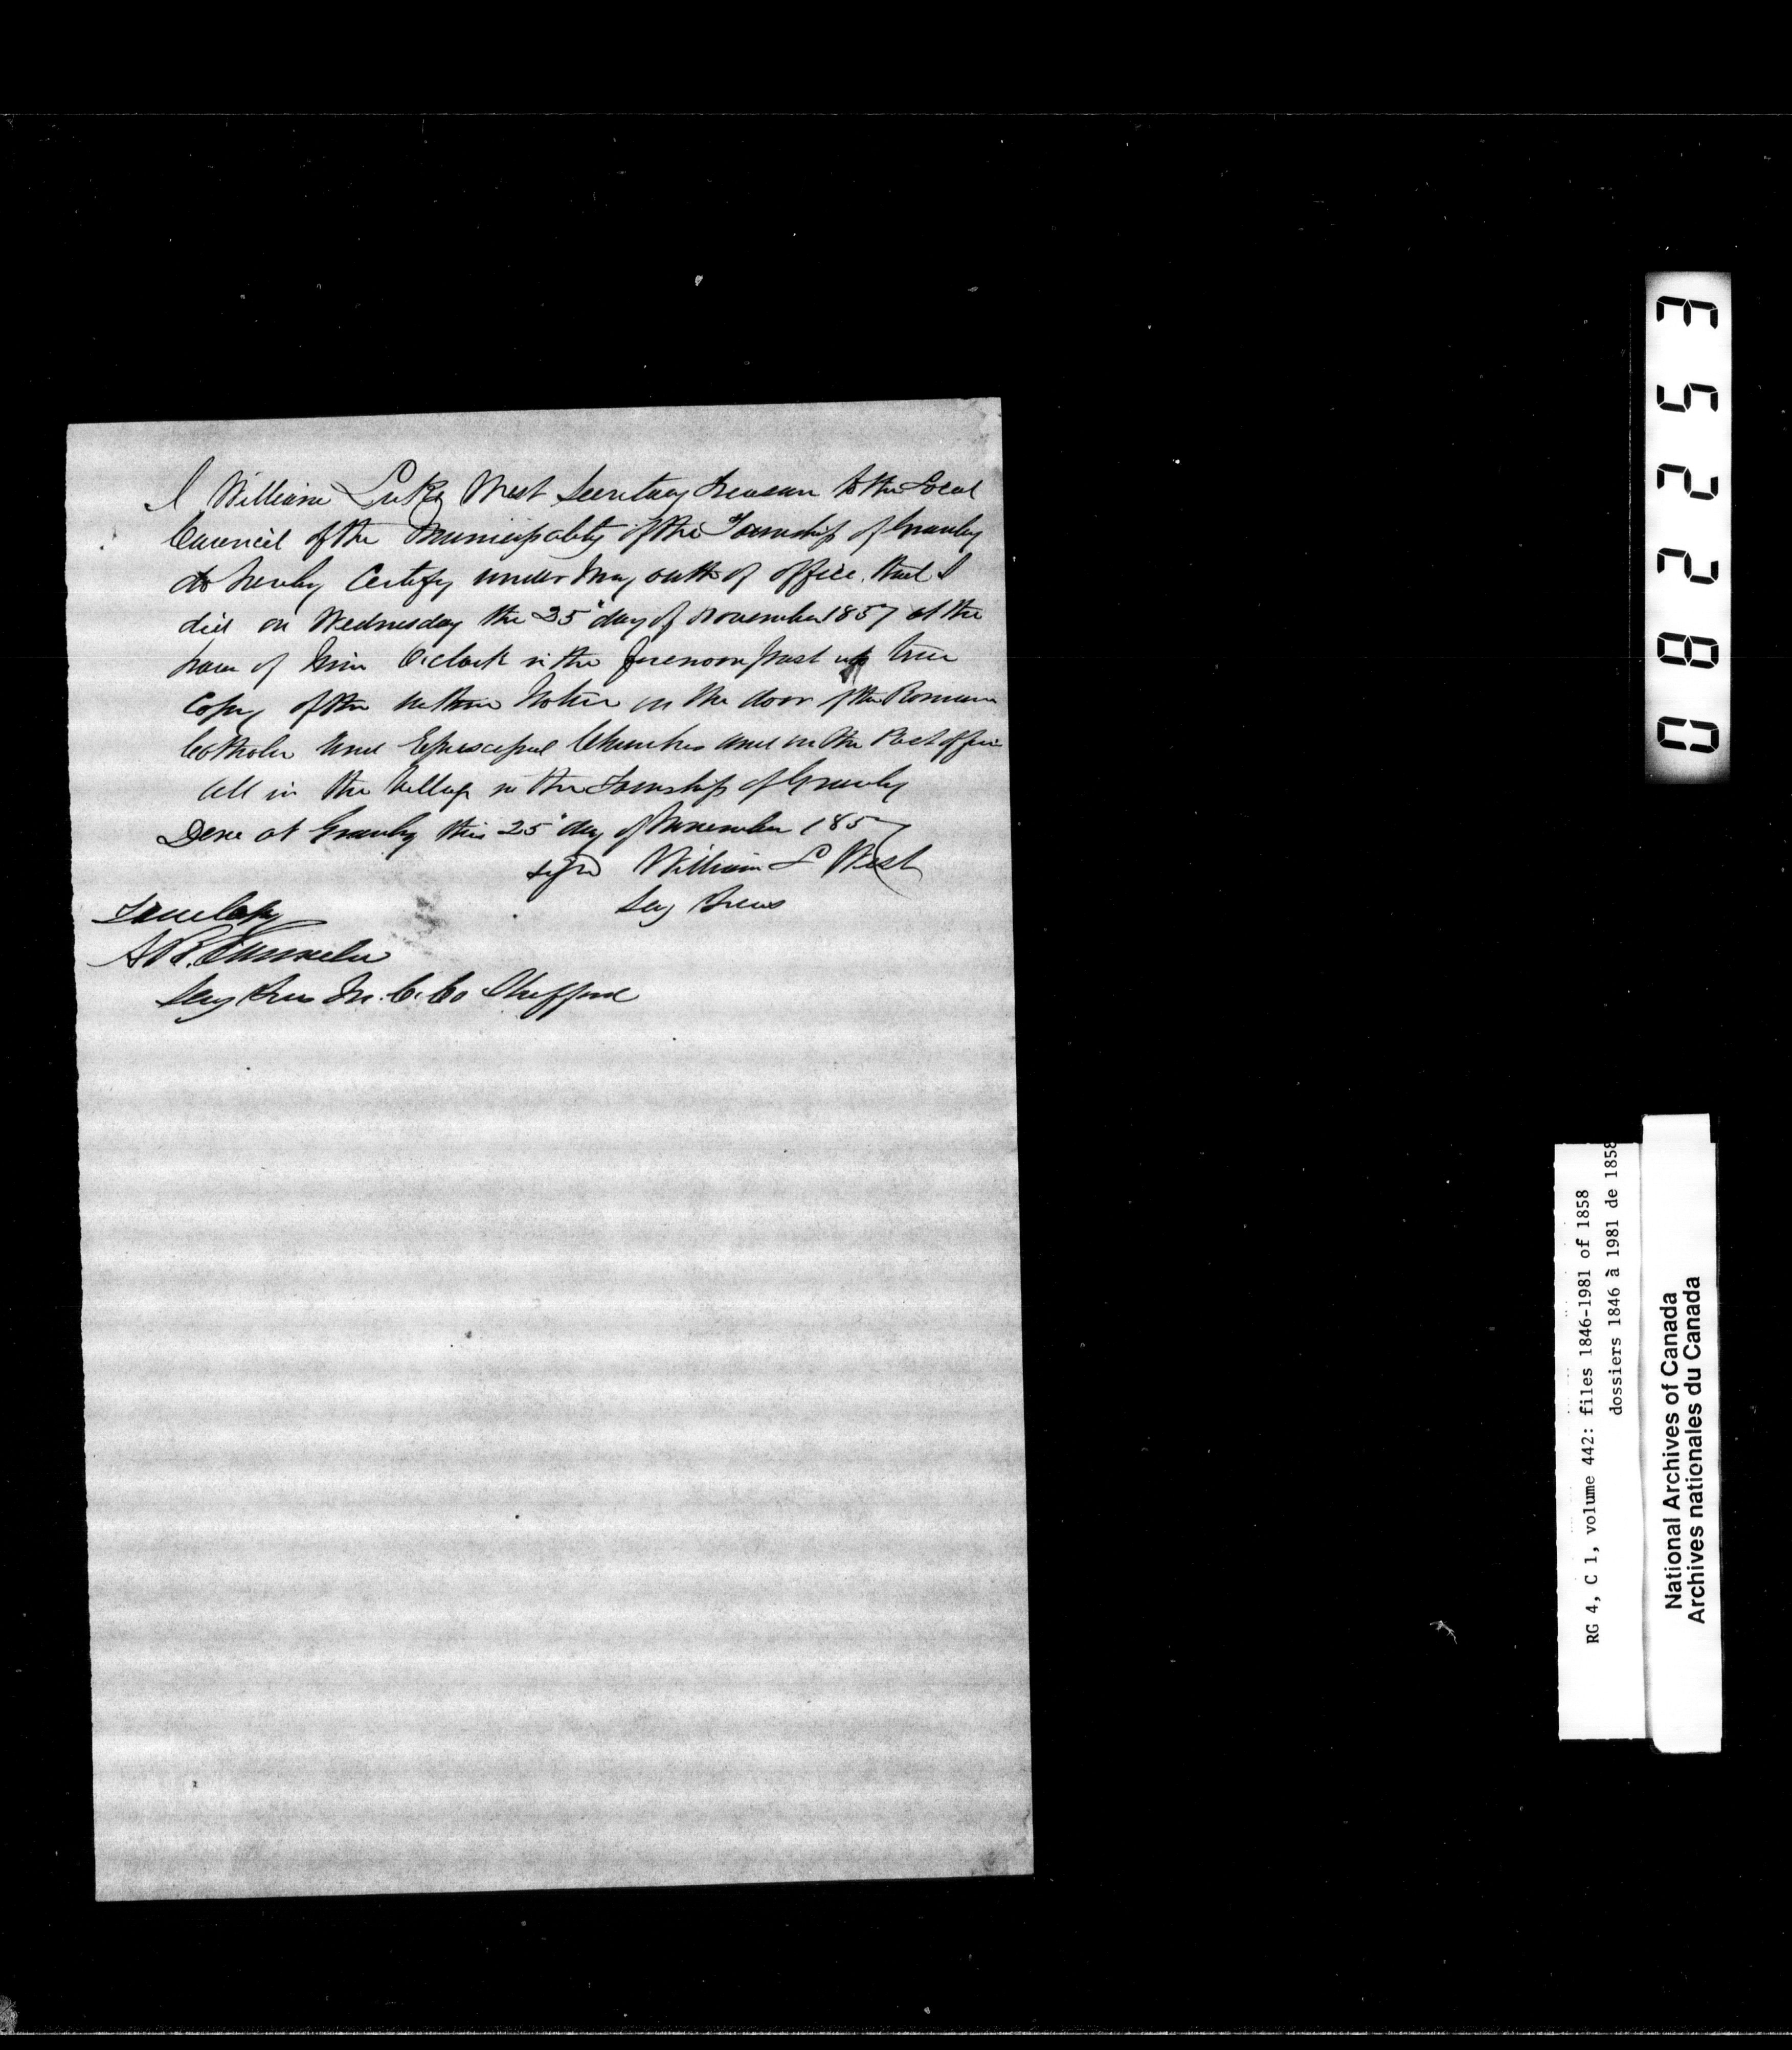 I William Luke West Secretary Treasurer to the Local
Council of the Municipality of the Township of Granby
do hereby Certify under my oath of office that I
did on Wednesday the 25" day of November 1857 at the
hour of Nine O'clock in the forenoon post up true
Copy of the within Notice on the door of the Roman
Catholic and Episcopal Churches and in the Post office
all in the Village in the Township of Granby
Done at Granby this 25" day of November 1857
signed William L West
Secy Treas
True Copy
Secy Treas M. C. Co Shefford
08253
RG 4, C 1, volume 442: files 1846-1981 of 1858
dossiers 1846 à 1981 de 1858
National Archives of Canada
Archives nationales du Canada